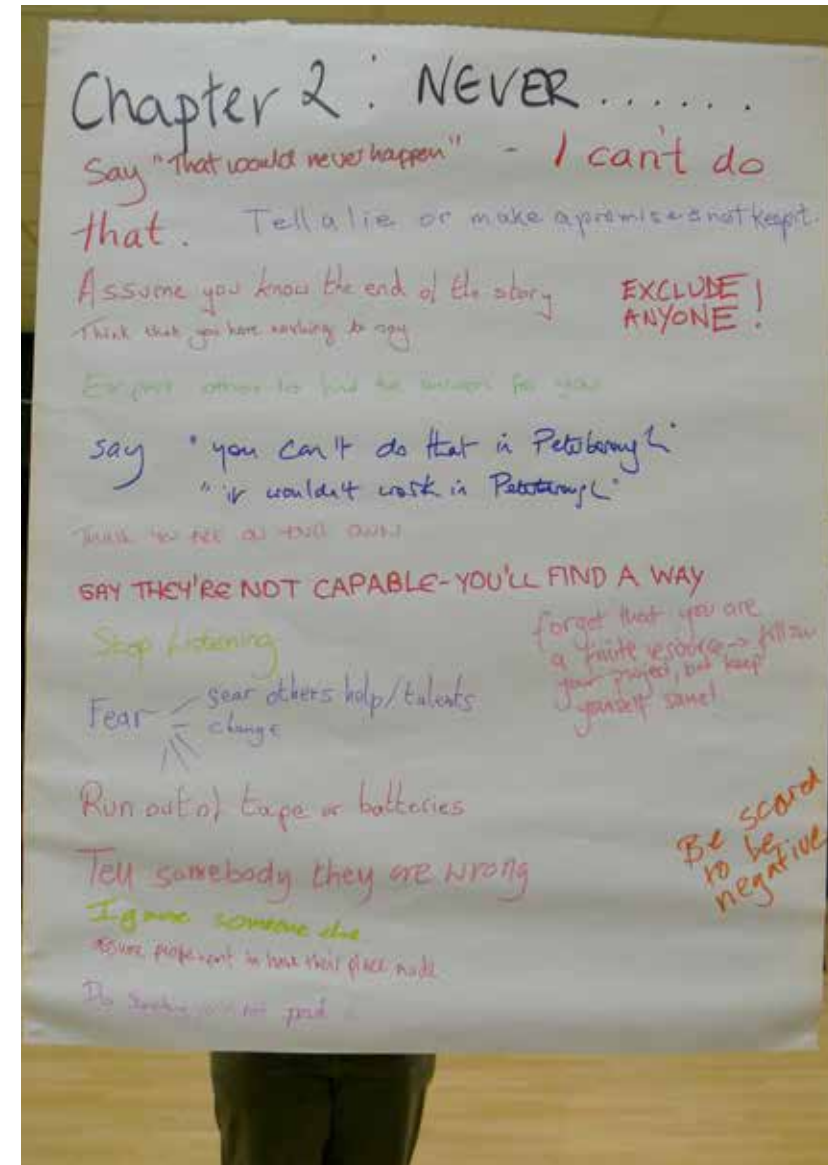 Chapter 2 : NEVER......
Say "That would never happen" - I can't do
that. Tell a lie or make a promise & not keep it.
Assume you know the end of the story
EXCLUDE
ANYONE!
Think that you have nothing to say
Expect others to find the answer for you
say "you can't do that in Peterborough"
"it wouldn't work in Peterborough"
Think you are on your own
SAY THEY'RE NOT CAPABLE-YOU'LL FIND A WAY
Stop Listening
forget that you are
a finite resource → follow
your project, but keep
yourself sane!
Fear
others help/talents
change
Run out of tape or batteries
Be scared
to be
negative
Tell somebody they are wrong
Ignore someone else
assume people want to have their place made
Do